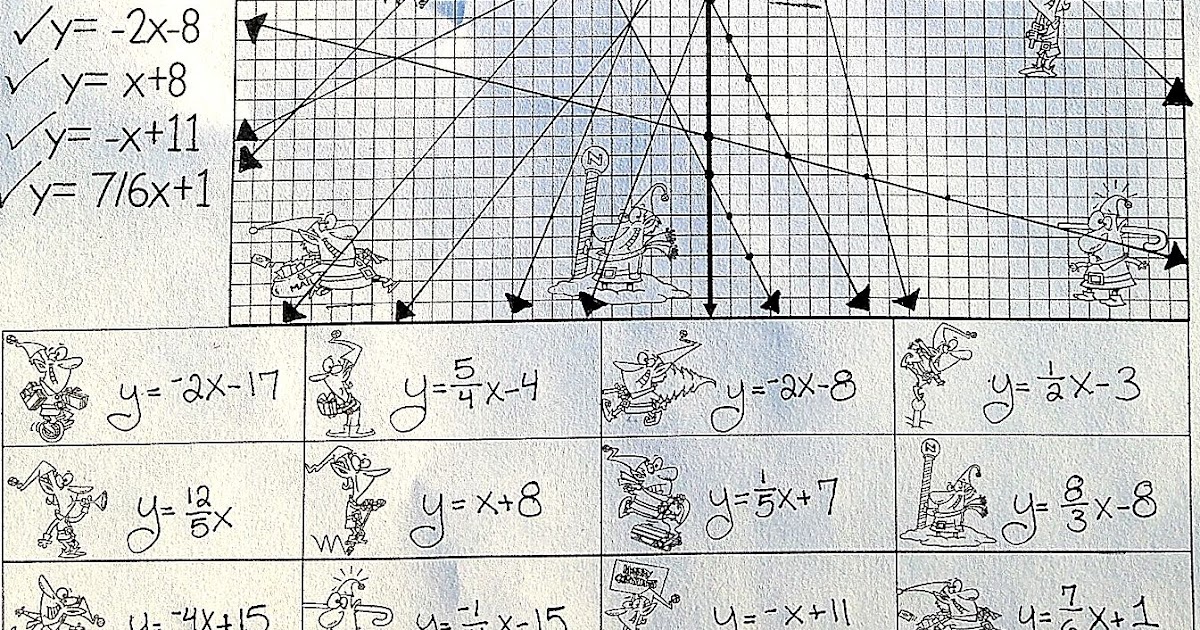 ✓ y= -2x-8
✓ y= x+8
✓ y= -x+11
✓ y= 7/6x+1
N
MAIL
y=⁻2x-17
y=5/4x-4
y=⁻2x-8
y=1/2x-3
y=12/5x
y=x+8
y=1/5x+7
N
y=8/3x-8
y=⁻4x+15
y= x-15
y=⁻x+11
y=7/6x+1